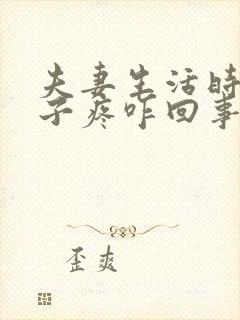 夫妻生活时
子疼咋回事
歪爽